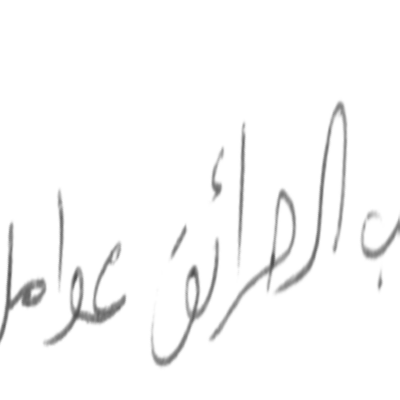 ب الحرائق عوامل